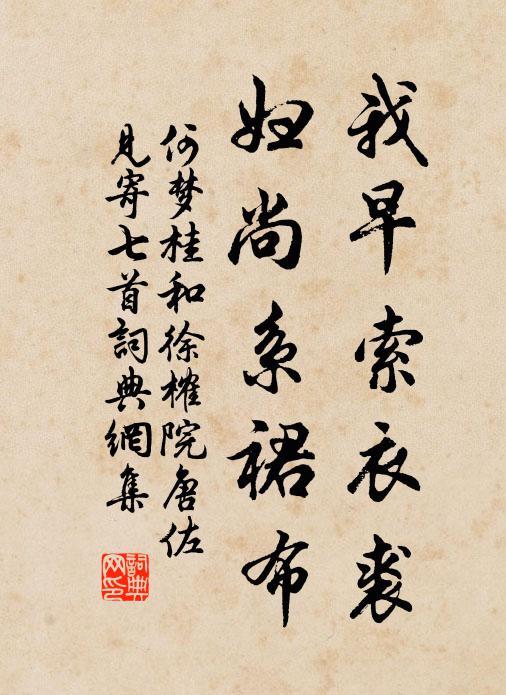 我早索衣裘
妇尚系裙布
何梦桂和徐榷院唐佐
見寄七首詞典網集
詞典网印